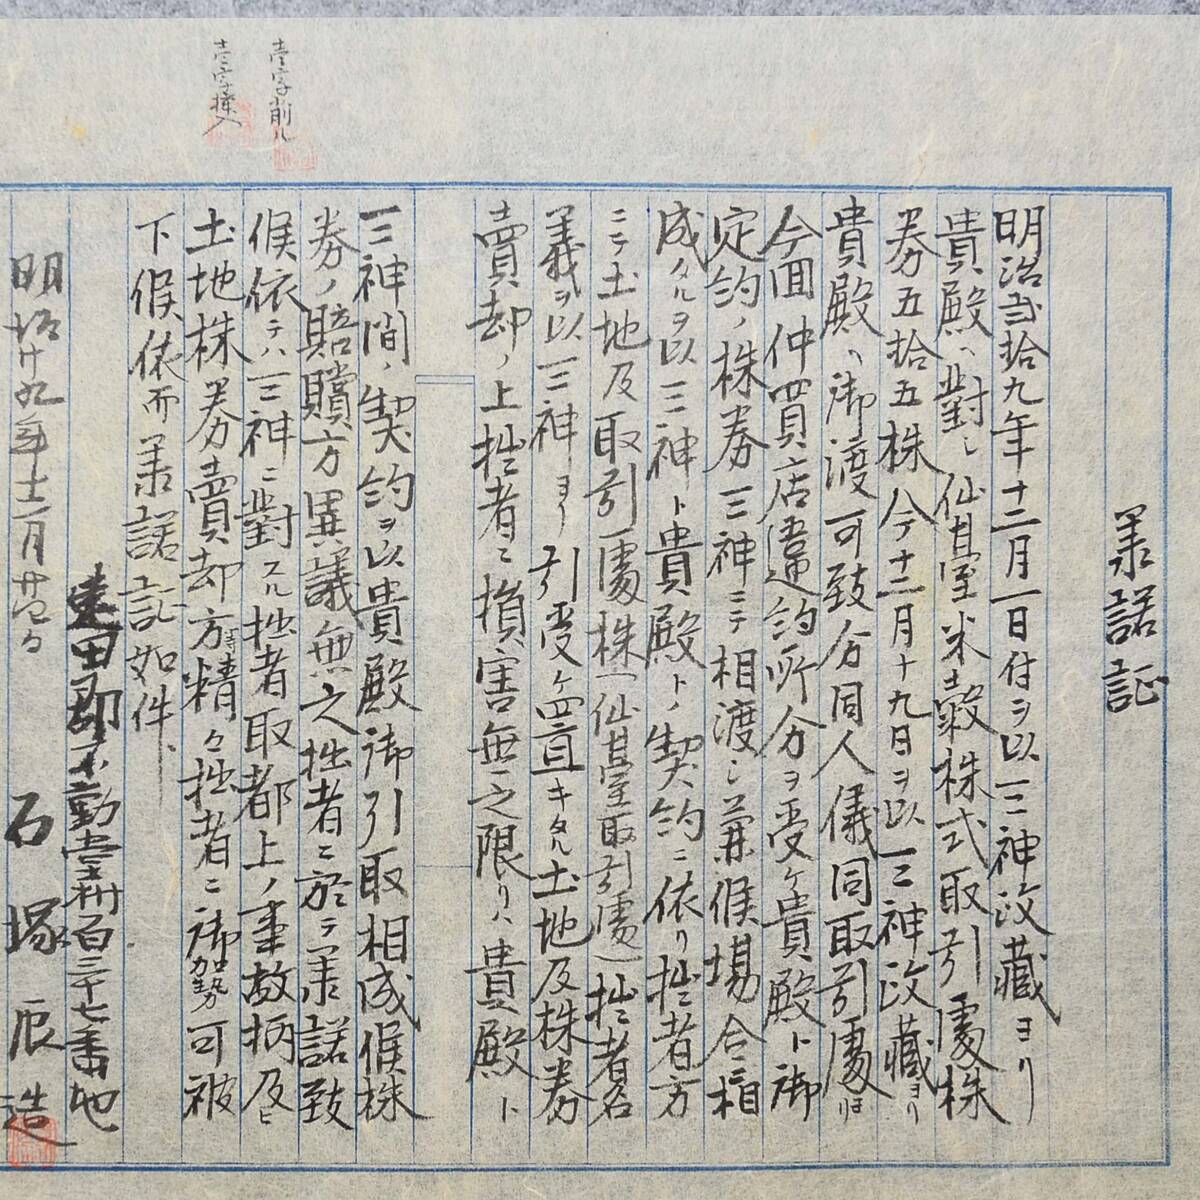 壱字削ル
壱字挿入
承諾証
明治弐拾九年十二月一日付ヲ以三神政蔵ヨリ
貴殿ヘ對シ仙䑓米穀株式取引處株
券五拾五株今十二月十九日ヲ以三神政蔵ヨリ
貴殿ヘ御渡可致分同人儀同取引處
今回仲買店違約所分ヲ受ケ貴殿ト御
定約ノ株券三神ニテ相渡シ兼候場合ニ相
成タルヲ以三神ト貴殿トノ契約ニ依リ拙者方
ニテ土地及取引處株(仙䑓取引處)拙者名
義ヲ以三神ヨリ引受ケ置キタル土地及株券
賣却ノ上拙者ニ損害無之限リハ貴殿ト
三神間ノ契約ヲ以貴殿御引取相成候株
券ノ賠贖方異議無之拙者ニ於テ承諾致
候依テハ三神ニ對スル拙者取都上ノ事故柄及ヒ
土地株券賣却方等精々拙者ニ御勢可被
下候依而承諾証如件、
遠田郡不動堂村百三十七番地
明治廿九年十二月廿
石塚辰造